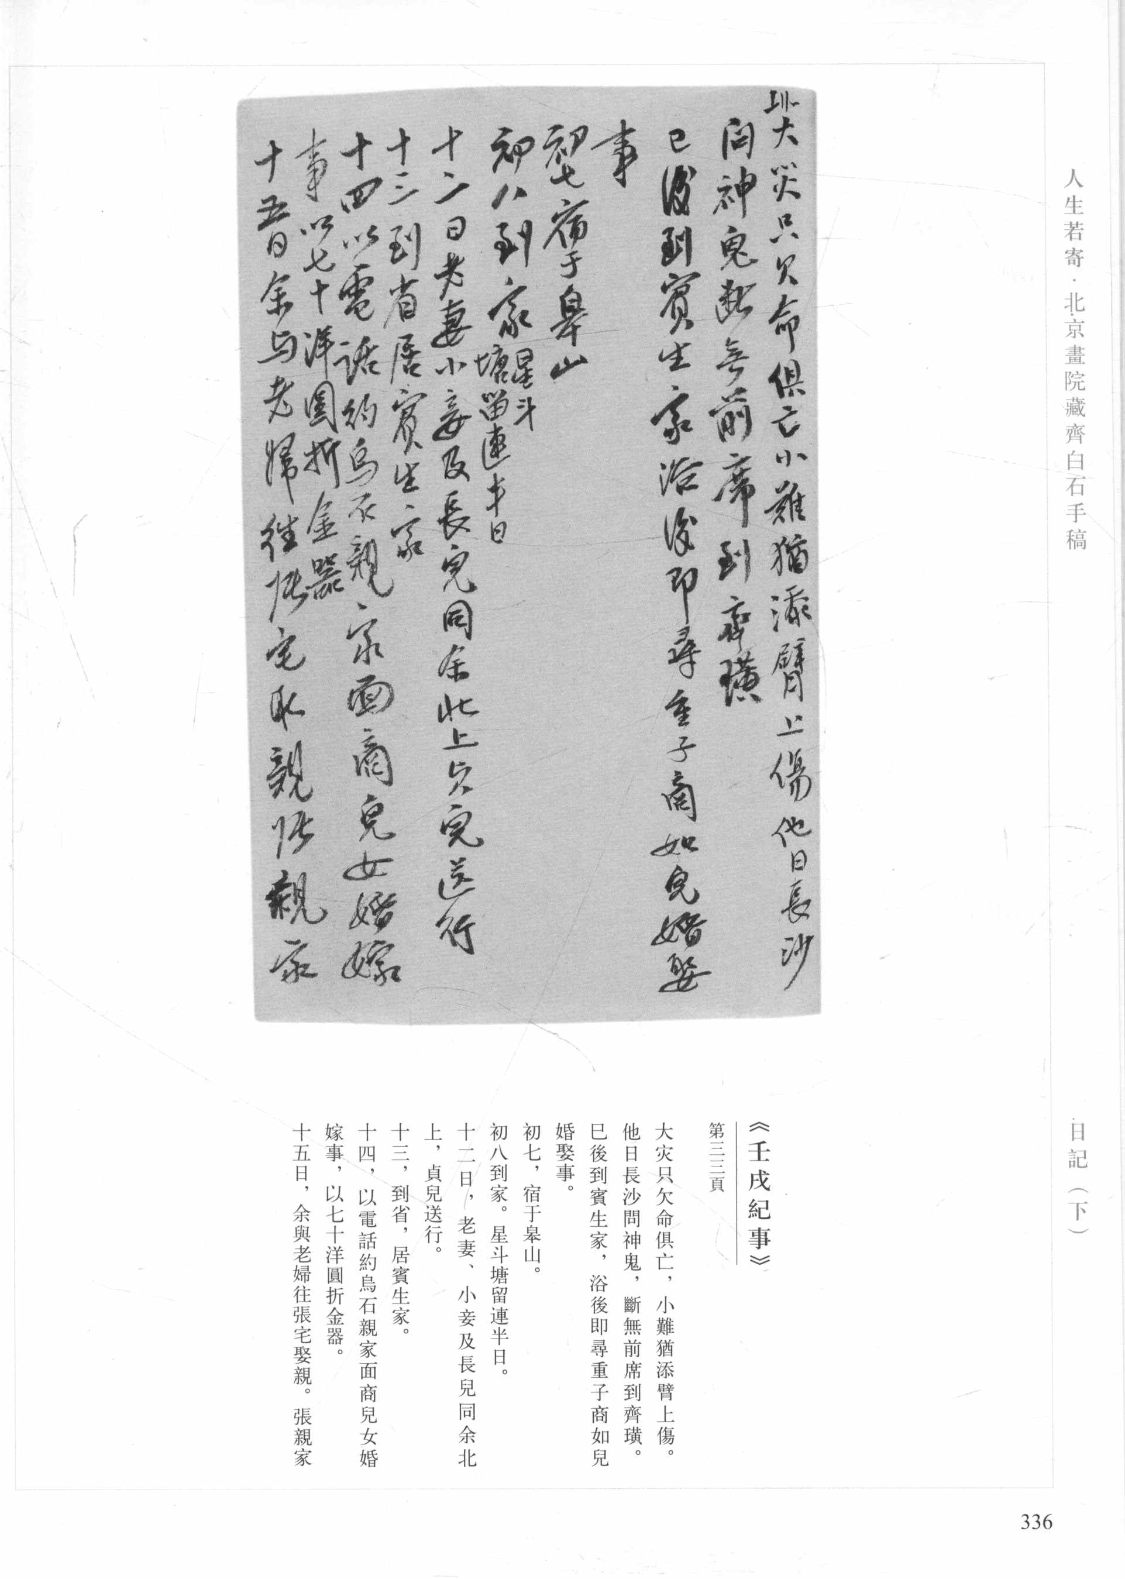 人生若寄·北京畫院藏齊白石手稿
日記（下）
大災只欠命俱亡小難猶添臂上傷他日長沙
問神鬼斷無前席到齊璜
巳後到賓生家浴後即尋重子商如兒婚娶
事
初七宿于皋山
初八到家星斗
塘留連半日
十二日老妻小妾及長兒同余北上貞兒送行
十三到省居賓生家
十四以電話約烏石親家面商兒女婚嫁
事以七十洋圓折金器
十五日余与老婦往張宅取親張親家
《壬戌紀事》
第三三頁
大灾只欠命俱亡，小難猶添臂上傷。
他日長沙問神鬼，斷無前席到齊璜。
巳後到賓生家，浴後即尋重子商如兒
婚娶事。
初七，宿于皋山。
初八到家。星斗塘留連半日。
十二日，老妻、小妾及長兒同余北
上，貞兒送行。
十三，到省，居賓生家。
十四，以電話約烏石親家面商兒女婚
嫁事，以七十洋圓折金器。
十五日，余與老婦往張宅娶親。張親家
336